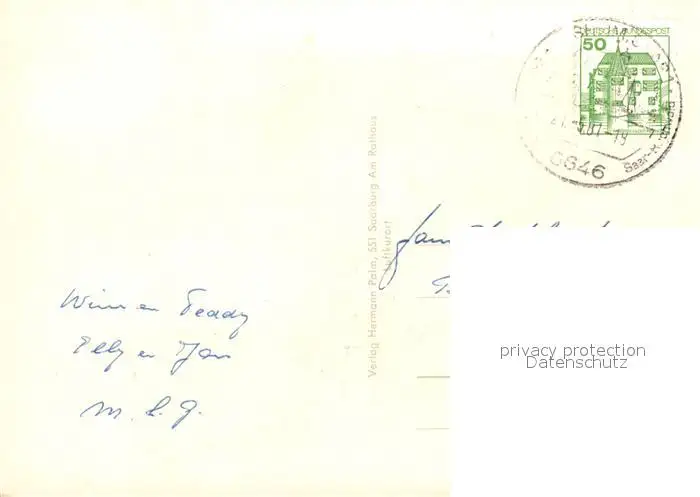 DEUTSCHE BUNDESPOST
50
6646
Saar-H
Verlag Hermann Palm, 551 Saarburg Am Rathaus
Luftkurort
Wim en Teddy
Elly en Jan
m. h. g.
privacy protection
Datenschutz